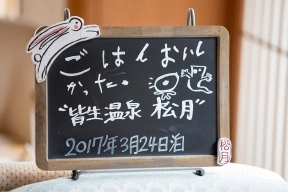 ごはんおいし
かった。
"皆生温泉 松月"
2017年3月24日泊
松月